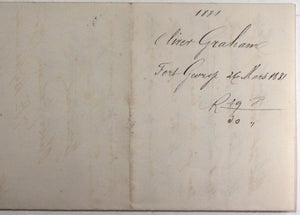 1881
Oliver Graham
Fort George 26 Mars 1881
R 29
30 "